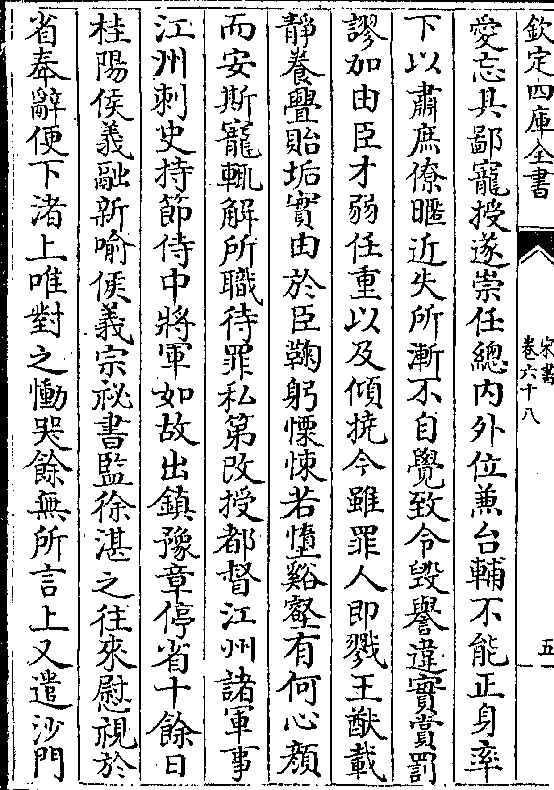 欽定四庫全書
宋書
卷六十八
五
愛忘其鄙寵授遂崇任總内外位兼台輔不能正身率
下以肅庶僚暱近失所漸不自覺致令毁譽違實賞罰
謬加由臣才弱任重以及傾撓今雖罪人即戮王猷載
静養釁貽垢實由於臣鞠躬慄悚若墮谿壑有何心顔
而安斯寵輒解所職待罪私第改授都督江州諸軍事
江州刺史持節侍中將軍如故出鎮豫章停省十餘日
桂陽侯義融新喻侯義宗祕書監徐湛之往來慰視於
省奉辭便下渚上唯對之慟哭餘無所言上又遣沙門